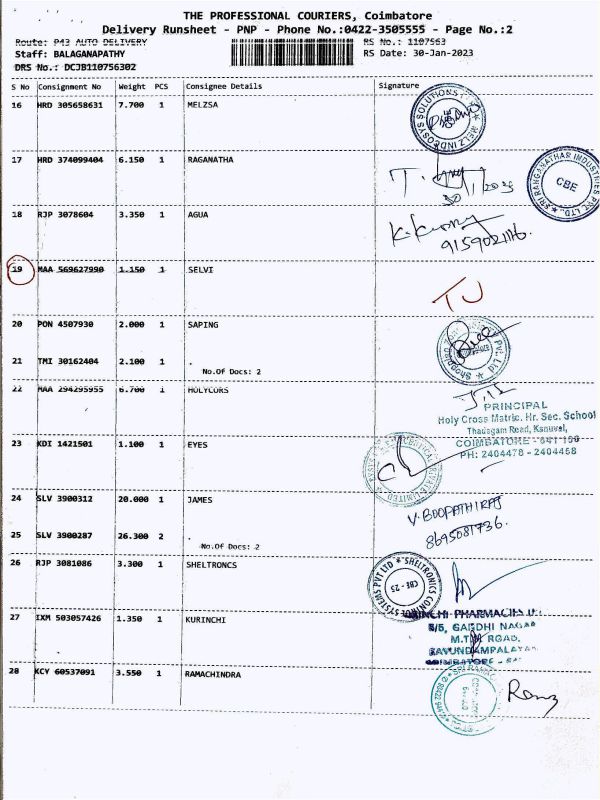 THE PROFESSIONAL COURIERS, Coimbatore
Delivery Runsheet - PNP - Phone No.:0422-3505555 - Page No.:2
Route: P43 AUTO DELIVERY RS No.: 1107563
Staff: BALAGANAPATHY RS Date: 30-Jan-2023
DRS No.: DCJB110756302
S No Consignment No Weight PCS Consignee Details Signature
16 HRD 305658631 7.700 1 MELZSA
MELZ INDEOSYS SOLUTIONS
17 HRD 374099404 6.150 1 RAGANATHA
30/1/2023
SRI RANGANATHAR INDUSTRIES PVT. LTD.,
CBE
18 RJP 3078604 3.350 1 AGUA
9159021116.
19 MAA 569627990 1.150 1 SELVI
TJ
20 PON 4507930 2.000 1 SAPING
Pvt. Ltd
21 TMI 30162404 2.100 1 .
No.Of Docs: 2
22 MAA 294295955 6.700 1 HOLYCORS
PRINCIPAL
Holy Cross Matric. Hr. Sec. School
Thadagam Road, Kanuvai,
COIMBATORE - 641 108
PH: 2404478 - 2404468
23 KDI 1421501 1.100 1 EYES
PRIVATE LIMITED
24 SLV 3900312 20.000 1 JAMES
V. BOOPATHIRAJ
8695081736.
25 SLV 3900287 26.300 2 .
No.Of Docs: 2
26 RJP 3081086 3.300 1 SHELTRONCS
SHELTRONICS CONTROL SYSTEMS PVT LTD
CBE - 25
27 IXM 503057426 1.350 1 KURINCHI
KURINCHI PHARMACY
5/5, GANDHI NAGAR
M.T.P. ROAD,
KAVUNDAMPALAYAM
COIMBATORE
28 KCY 60537091 3.550 1 RAMACHINDRA